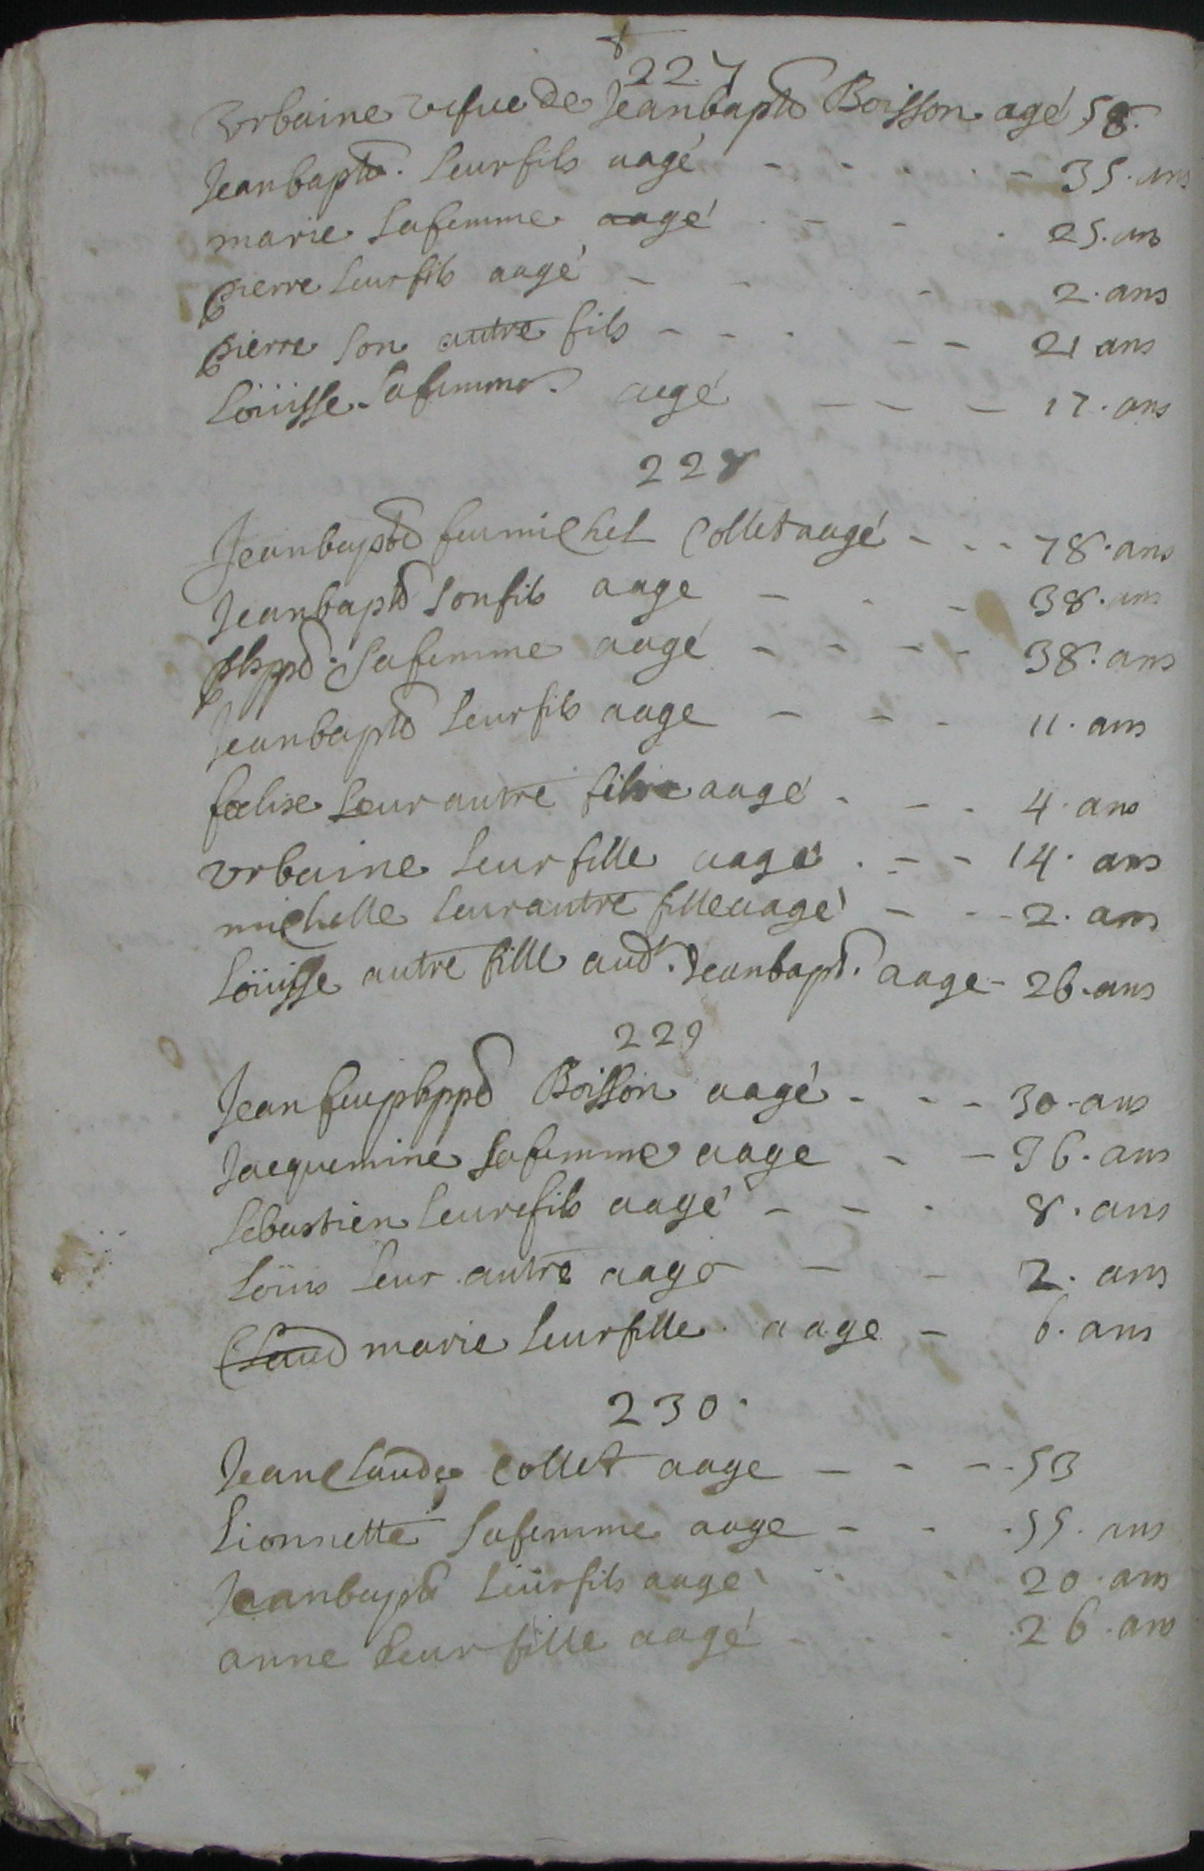 227
Vrbaine vefue de Jeanbapte Boisson agé 58.
Jeanbapte. leur fils aagé - - - - - 35. ans
marie sa femme aagé - - - 25. ans
pierre leur fils aagé - - - 2. ans
pierre son autre fils - - - - - 21 ans
Loüisse sa femme. aegé - - - 17. ans
228
Jeanbapte feu michel Collet aagé - - - 78. ans
Jeanbapte son fils aage - - - 38. ans
phppe. sa femme aagé - - - - 38. ans
Jeanbapte leur fils aage - - - 11. ans
foelise leur autre aagé - - - 4 ans
vrbaine leur fille aagé - - - 14. ans
michelle leur autre fille aagé - - - 2. ans
Loüisse autre fille aud. Jeanbapt. aage - 26. ans
229
Jean feu phppe Boisson aagé - - - 30 ans
Jacquemine sa femme aage - - 36. ans
Sebastien leur fils aagé - - - 8. ans
Loüis leur autre aage - - 2. ans
Claud marie leur fille. aage - 6. ans
230.
Jean Claude Collet aage - - - 53
Lionnette sa femme aage - - - 55. ans
Jeanbapte leur fils aagé - - - 20. ans
anne leur fille aagé - - - 26. ans